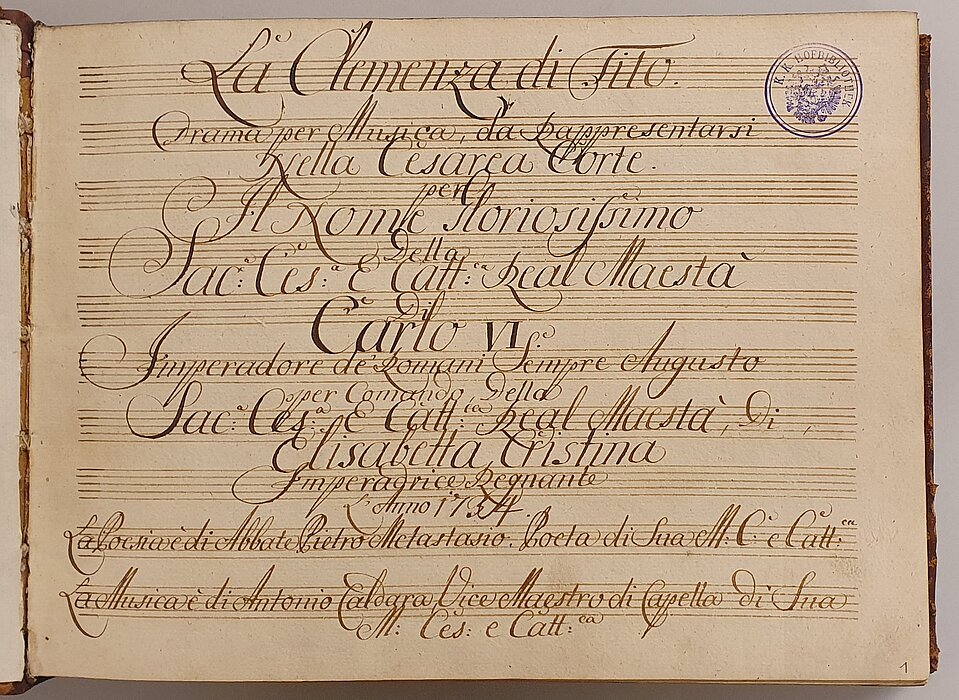 La Clemenza di Tito.
K. K. HOFBIBLIOTHEK
Drama per Musica, da Rappresentarsi
Nella Cesarea Corte.
per
Il Nome Gloriosissimo
Della
Sac.ª Ces.ª E Catt.ca Real Maestà
Di
Carlo VI.
Imperadore de' Romani Sempre Augusto
per Comando Della
Sac.ª Ces.ª E Catt.ca Real Maestà, Di
Elisabetta Cristina
Imperadrice Regnante
L'Anno 1734.
La Poesia è di Abbate Pietro Metastasio. Poeta di Sua M: C: e Catt:ca
La Musica è di Antonio Caldara, Vice Maestro di Capella di Sua
M: Ces: e Catt:ca
1